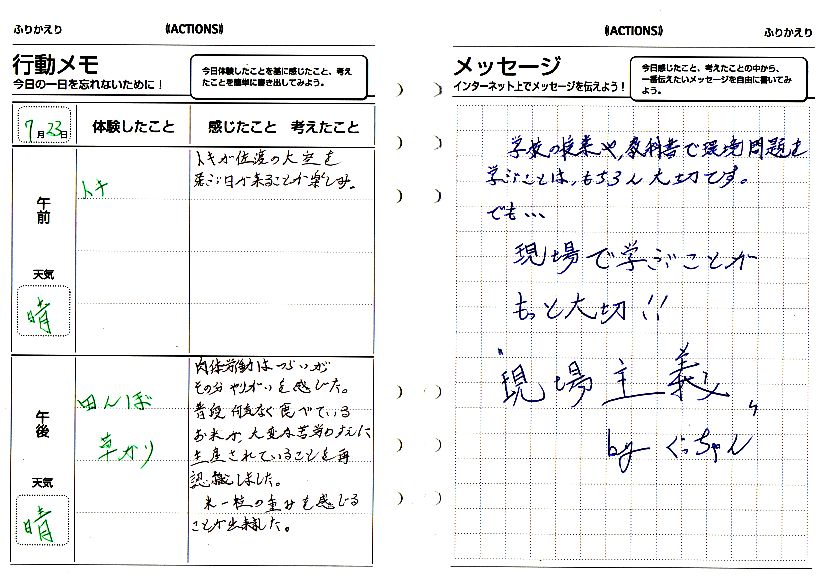 ふりかえり
《ACTIONS》
行動メモ
今日の一日を忘れないために！
今日体験したことを基に感じたこと、考え
たことを簡単に書き出してみよう。
9月23日
体験したこと
感じたこと 考えたこと
午前
トキ
トキが佐渡の大空を
飛ぶ日が来ることが楽しみ。
天気
晴
午後
田んぼ
草かり
肉体労働はつらいが
その分やりがいを感じた。
普段何気なく食べている
お米が、大変な苦労のすえに
生産されていることを再
認識しました。
米一粒の重みを感じる
ことが出来た。
天気
晴
《ACTIONS》
ふりかえり
メッセージ
インターネット上でメッセージを伝えよう！
今日感じたこと、考えたことの中から、
一番伝えたいメッセージを自由に書いてみ
よう。
学校の授業や、教科書で環境問題を
学ぶことは、もちろん大切です。
でも…
現場で学ぶことが
もっと大切！！
"現場主義"
by ぐっちゃん